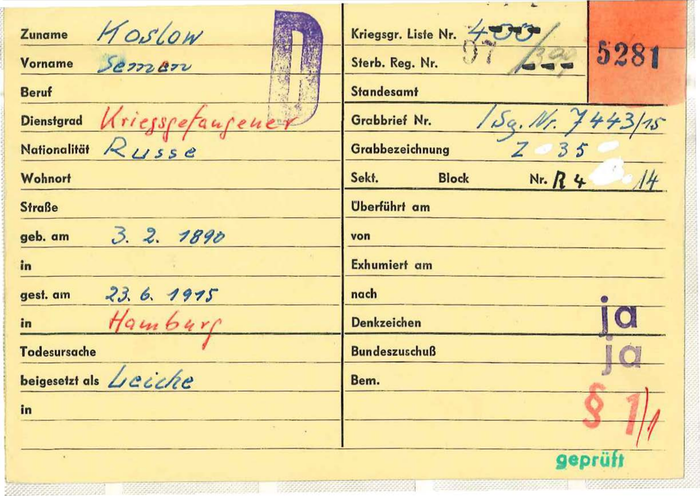 Zuname Koslow
Vorname Semen
Beruf
Dienstgrad Kriegsgefangener
Nationalität Russe
Wohnort
Straße
geb. am 3. 2. 1890
in
gest. am 23. 6. 1915
in Hamburg
Todesursache
beigesetzt als Leiche
in
D
Kriegsgr. Liste Nr.
Sterb. Reg. Nr. 97
Standesamt
Grabbrief Nr. 1Sg. Nr. 7443/15
Grabbezeichnung Z 35
Sekt. Block Nr. R 4 14
Überführt am
von
Exhumiert am
nach
Denkzeichen ja
Bundeszuschuß ja
Bem.
§ 1/1
geprüft
5281